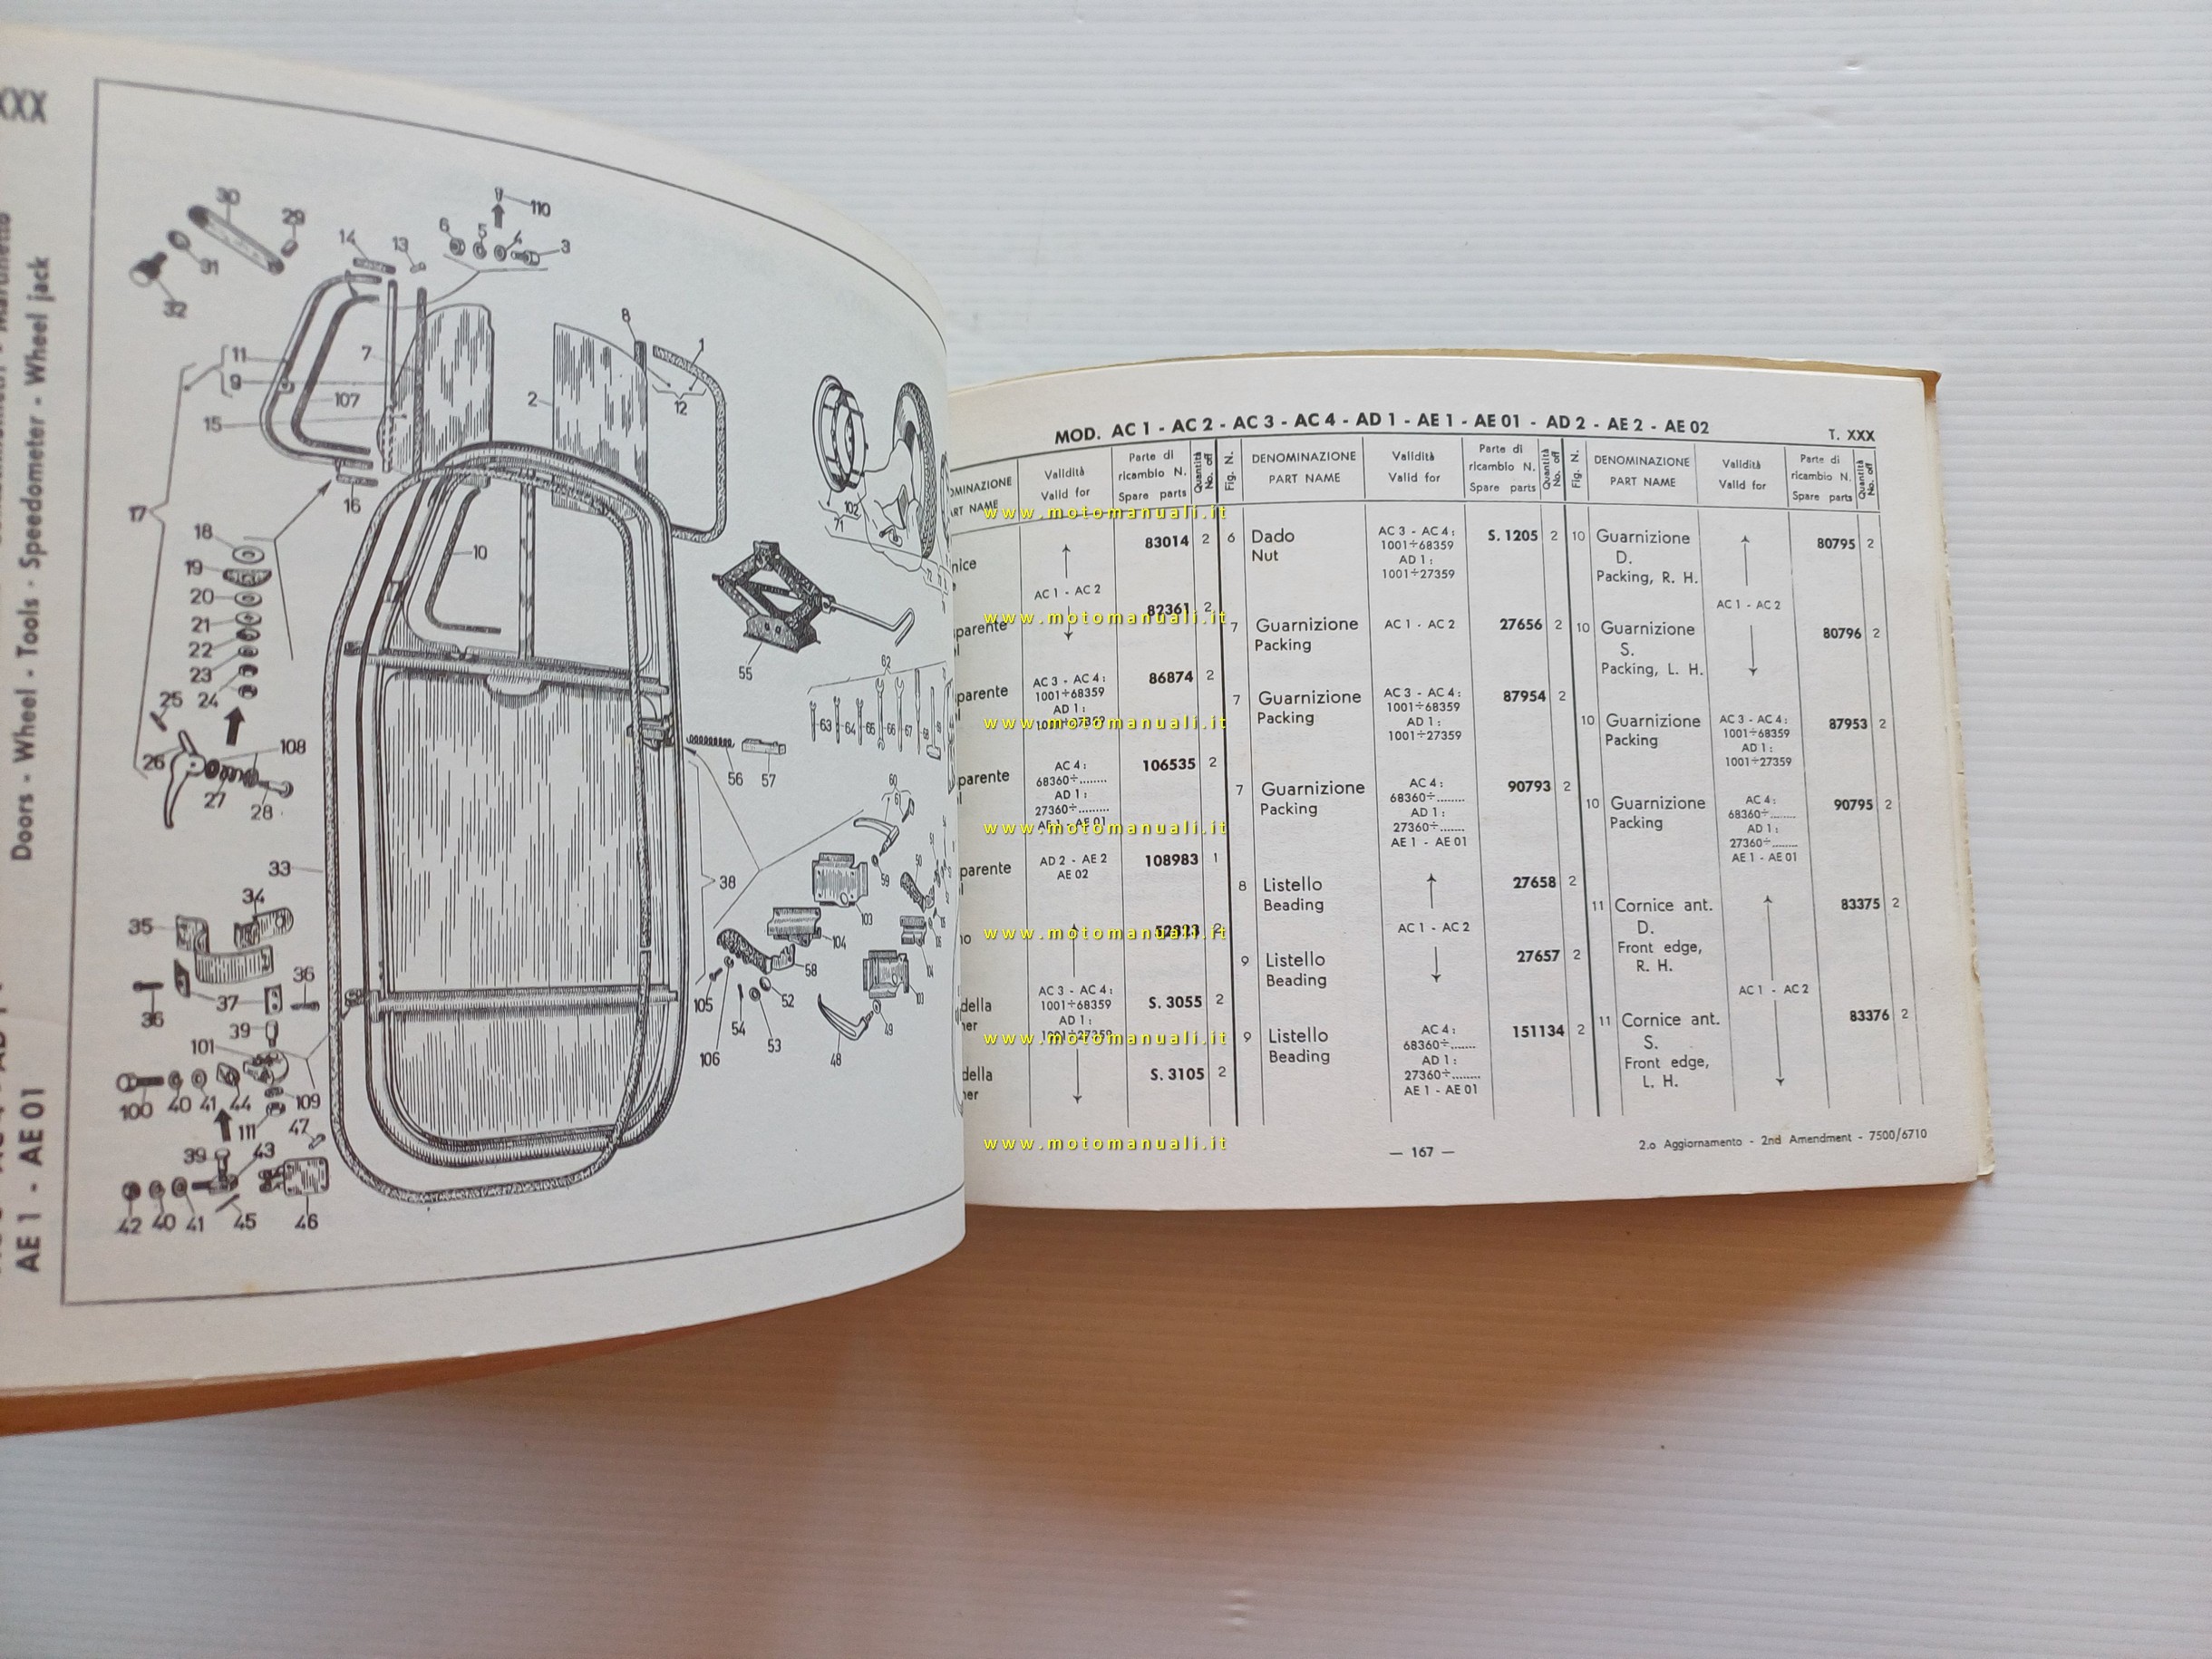 XXX
Doors - Wheel - Tools - Speedometer - Wheel jack
AE 1 - AE 01
30
29
31
32
14
13
6
5
4
3
110
11
9
7
107
15
8
1
2
12
17
16
10
18
19
20
21
22
23
24
25
26
108
27
28
33
34
35
36
37
36
39
101
100
40
41
44
109
111
47
39
43
42
40
41
45
46
102
71
55
62
63
64
65
66
67
68
56
57
60
61
59
50
38
103
104
58
105
52
54
53
106
48
49
MOD. AC 1 - AC 2 - AC 3 - AC 4 - AD 1 - AE 1 - AE 01 - AD 2 - AE 2 - AE 02
T. XXX
Validità
Valid for
Parte di
ricambio N.
Spare parts
Quantità
No. off
83014 2
AC 1 - AC 2
82361 2
AC 3 - AC 4:
1001÷68359
AD 1:
1001÷27359
86874 2
AC 4:
68360÷........
AD 1:
27360÷.........
AE 1 - AE 01
106535 2
AD 2 - AE 2
AE 02
108983 1
2
AC 3 - AC 4:
1001÷68359
AD 1:
1001÷27359
S. 3055 2
S. 3105 2
Fig. N.
DENOMINAZIONE
PART NAME
Validità
Valid for
Parte di
ricambio N.
Spare parts
Quantità
No. off
6 Dado
Nut
AC 3 - AC 4:
1001÷68359
AD 1:
1001÷27359
S. 1205 2
7 Guarnizione
Packing
AC 1 - AC 2
27656 2
7 Guarnizione
Packing
AC 3 - AC 4:
1001÷68359
AD 1:
1001÷27359
87954 2
7 Guarnizione
Packing
AC 4:
68360÷........
AD 1:
27360÷........
AE 1 - AE 01
90793 2
8 Listello
Beading
27658 2
AC 1 - AC 2
9 Listello
Beading
27657 2
9 Listello
Beading
AC 4:
68360÷.......
AD 1:
27360÷........
AE 1 - AE 01
151134 2
Fig. N.
DENOMINAZIONE
PART NAME
Validità
Valid for
Parte di
ricambio N.
Spare parts
Quantità
No. off
10 Guarnizione
D.
Packing, R. H.
80795 2
AC 1 - AC 2
10 Guarnizione
S.
Packing, L. H.
80796 2
10 Guarnizione
Packing
AC 3 - AC 4:
1001÷68359
AD 1:
1001÷27359
87953 2
10 Guarnizione
Packing
AC 4:
68360÷........
AD 1:
27360÷........
AE 1 - AE 01
90795 2
11 Cornice ant.
D.
Front edge,
R. H.
83375 2
AC 1 - AC 2
11 Cornice ant.
S.
Front edge,
L. H.
83376 2
— 167 —
2.o Aggiornamento - 2nd Amendment - 7500/6710
www.motomanuali.it
www.motomanuali.it
www.motomanuali.it
www.motomanuali.it
www.motomanuali.it
www.motomanuali.it
www.motomanuali.it